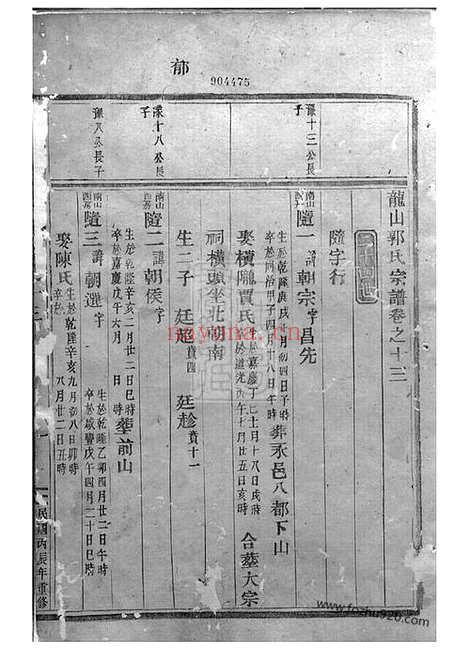 郁
904475
龍山郭氏宗譜卷之十三
二十四世
隨字行
豫十三公長子
南山四房
隨一 諱朝宗字昌先
生於乾隆庚戌
卒於同治甲子四月十八日午時
葬永邑八都下山
娶橫隴賈氏
生於嘉慶丁巳十月十八日戌時
卒於道光丙午七月廿五日亥時
合塟大宗
祠橫頭坐北朝南
生二子 廷超賁四 廷趁賁十一
豫十八公長子
南山四房
隨二 諱朝侯字
生於乾隆辛亥二月廿二日巳時
卒於嘉慶戊午六月 日
塟前山
豫八公長子
南山四房
隨三 諱朝選字
生於乾隆乙卯四月廿二日午時
卒於咸豐戊午四月二十日巳時
娶陳氏
生於乾隆辛亥九月初八日卯時
卒於 八月廿二日丑時
民國丙辰年重修
www.fozhu920.com